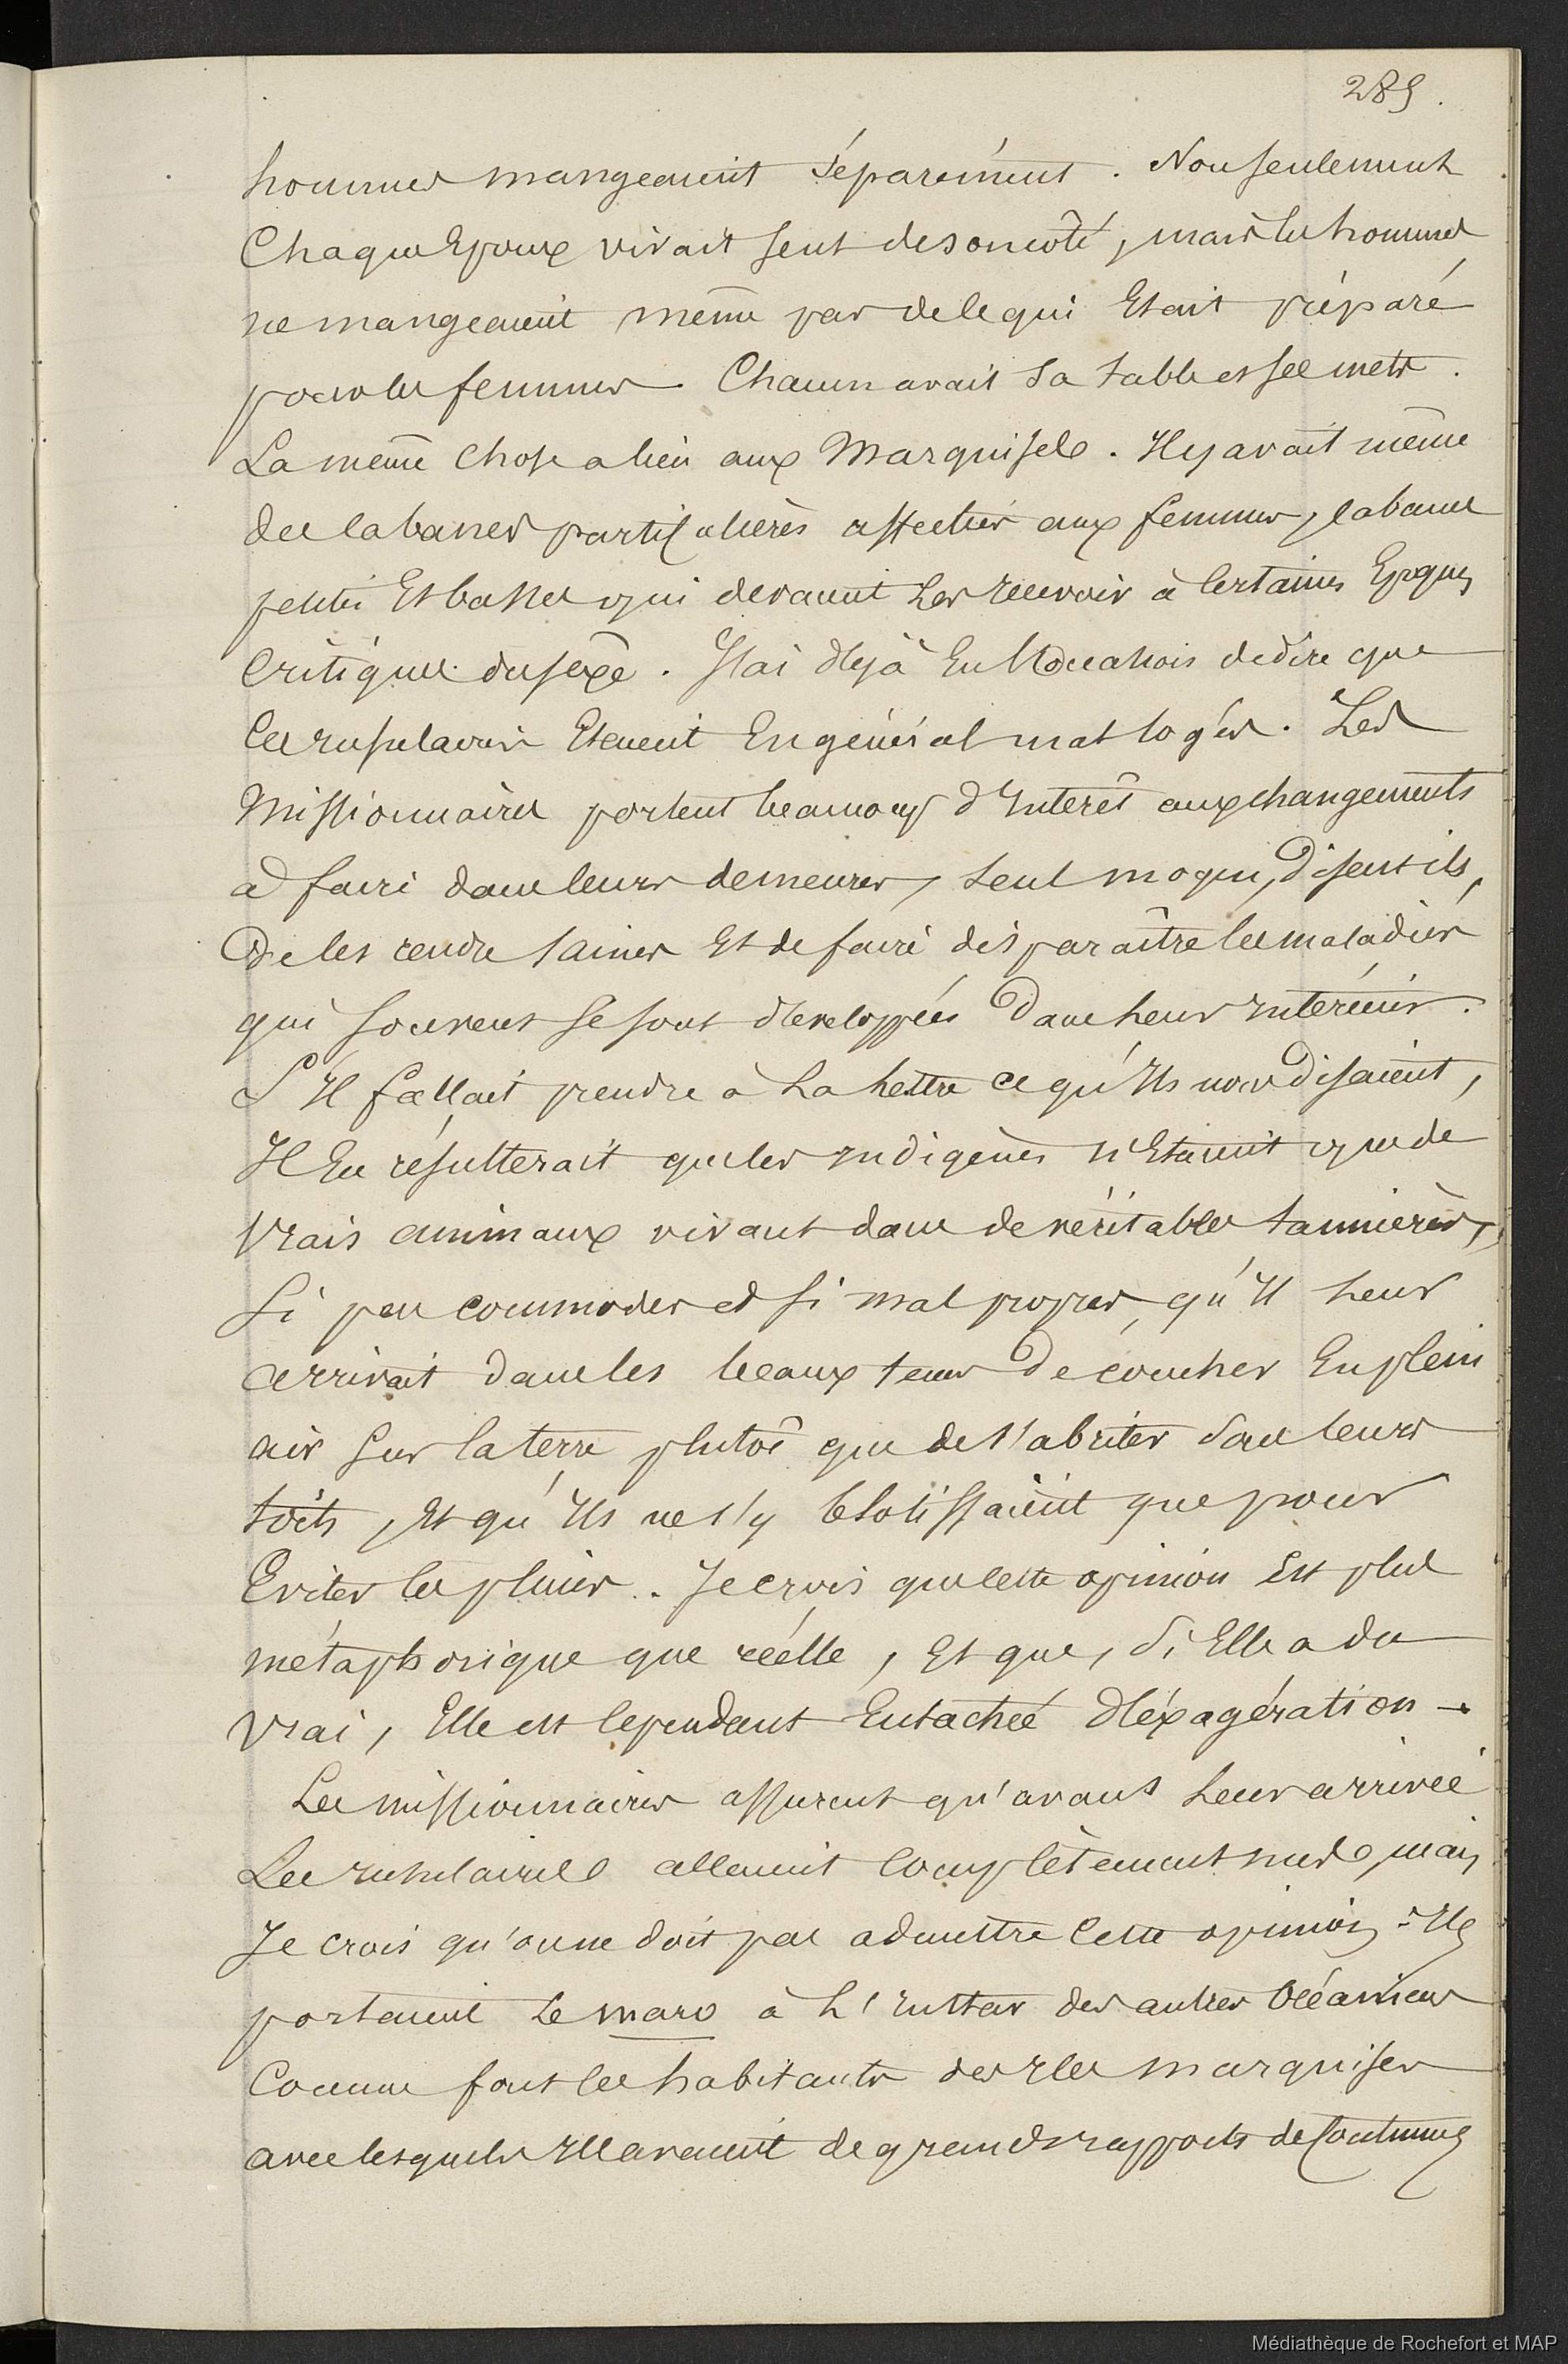 289.
hommes mangeaient séparément. Non seulement
Chaque Epoux vivait seul de son côté, mais les hommes
ne mangeaient même pas de ce qui Etait préparé
pour les femmes. Chacun avait sa table et ses mets.
La même chose a lieu aux Marquises. Il y avait même
des cabanes particulières affectées aux femmes, cabanes
petites Et basses qui devaient Les recevoir à Certaines Epoques
Critiques du sexe. J'ai déjà Eu l'occasion de dire que
Ces insulaires Etaient En général mal logés. Les
Missionnaires portent beaucoup d'Interêt aux changements
à faire dans leurs demeures, seul moyen, disent ils,
De les rendre saines Et de faire disparaître les maladies
qui souvent se sont développées Dans leur intérieur.
S'Il fallait prendre à La Lettre ce qu'Ils nous disaient,
Il En résulterait que les indigènes n'Etaient que de
Vrais animaux vivant dans de véritables tannières,
Si peu commodes et si mal propres, qu'Il Leur
arrivait dans les beaux tems De coucher En plein
air Sur la terre plutôt que de s'abriter sous leurs
toits, Et qu'Ils ne s'y blotissaient que pour
Eviter les pluies. Je crois que cette opinion Est plus
métaphorique que réelle, Et que, si Elle a du
vrai, Elle est cependant Entachée d'éxagération -
Les missionnaires assurent qu'avant Leur arrivée
Les insulaires allaient complètement nuds, mais
Je crois qu'on ne doit pas admettre cette opinion. Ils
portaient Le maro à L'instar des autres Océaniens
Comme font les habitants des Iles marquises
avec lesquels Ils avaient de grands rapports de Coutumes
Médiathèque de Rochefort et MAP